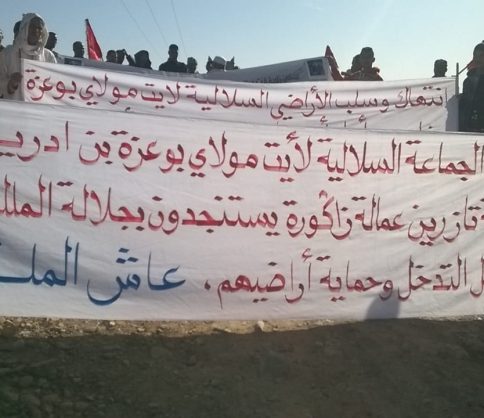 انتهاك وسلب الأراضي السلالية لايت مولاي بوعزة
الجماعة السلالية لأيت مولاي بوعزة بن ادري
تازرين عمالة زاكورة يستنجدون بجلالة الملك
التدخل وحماية أراضيهم، عاش الملك